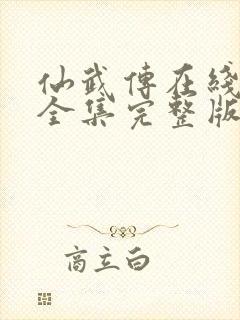 仙武傳在綫
全集完整版
商立白